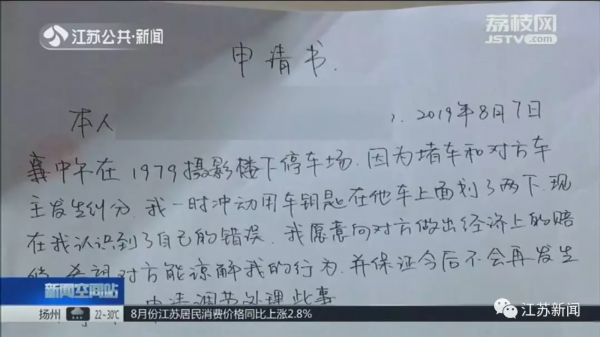 江苏公共·新闻
荔枝网
JSTV.com
申请书.
本人 ). 2019年8月7日
中午在1979摄影楼下停车场.因为堵车和对方车
主发生纠分.我一时冲动用车钥匙在他车上面划了两下.现
在我认识到了自己的错误.我愿意向对方做出经济上的赔
对方能谅解我的行为.并保证今后不会再发生
处理此事
新闻空间站
扬州 22~30℃ 8月份江苏居民消费价格同比上涨2.8%
江苏新闻